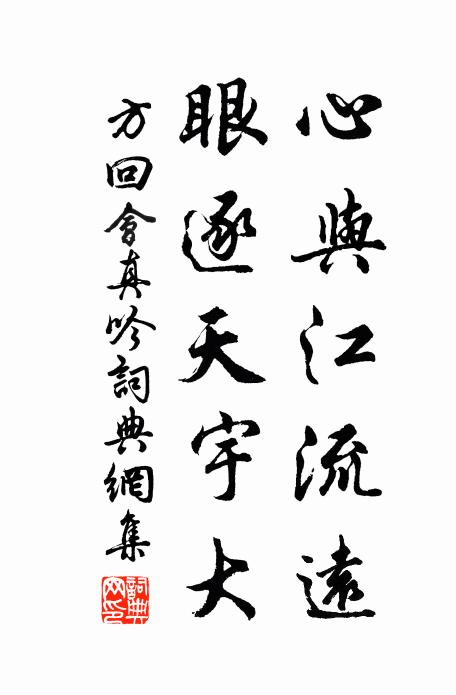 心與江流遠
眼逐天宇大
方回會真吟詞典網集
詞典網印